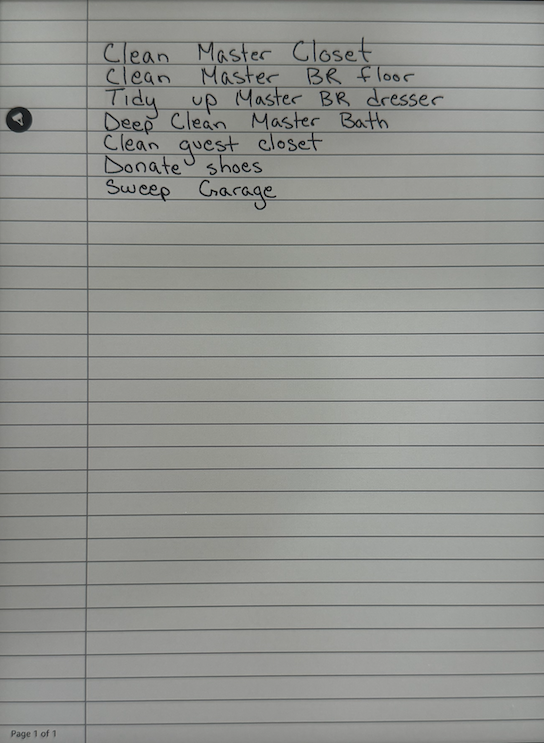 Clean Master Closet
Clean Master BR floor
Tidy up Master BR dresser
Deep Clean Master Bath
Clean guest closet
Donate shoes
Sweep Garage
Page 1 of 1